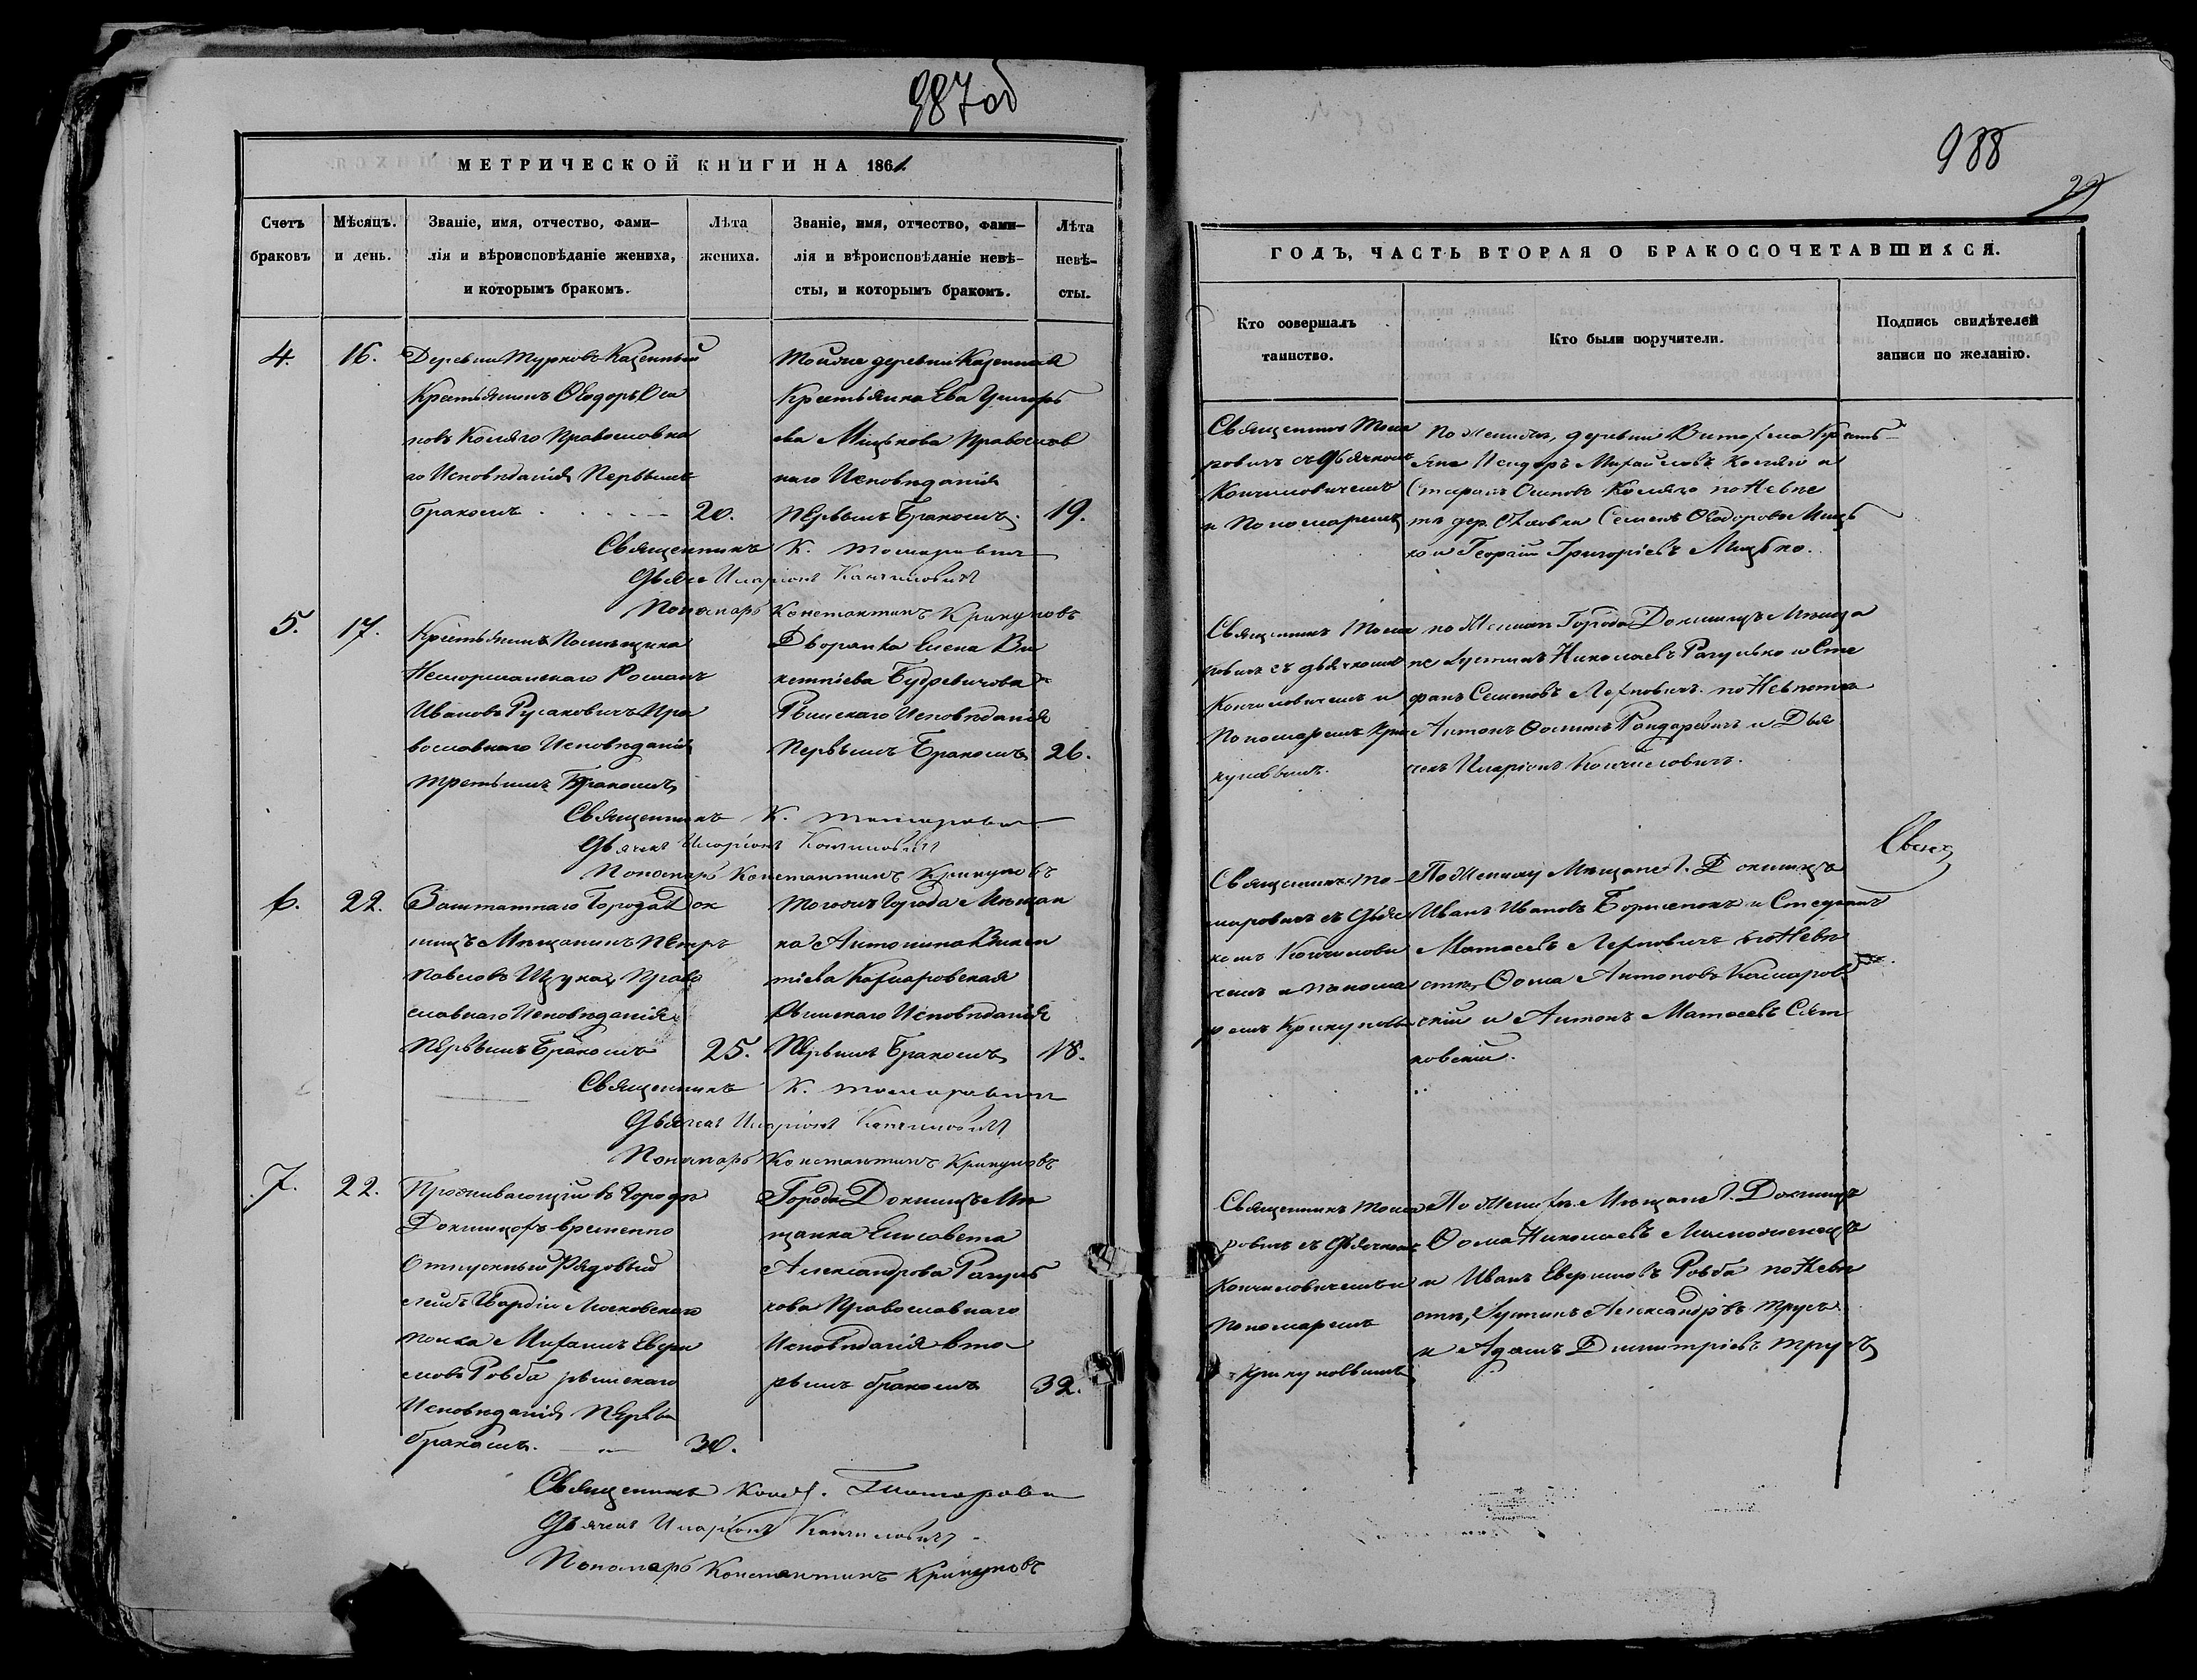 987 об
МЕТРИЧЕСКОЙ КНИГИ НА 1861
Счетъ браковъ
Мѣсяцъ. и день.
Званіе, имя, отчество, фами-
лія и вѣроисповѣданіе жениха,
и которымъ бракомъ.
Лѣта жениха.
Званіе, имя, отчество, фами-
лія и вѣроисповѣданіе невѣ-
сты, и которымъ бракомъ.
Лѣта невѣ-
сты.
4. 16.
Деревни Турковъ Казенный
Крестьянинъ Ѳеодоръ Оси
повъ Коляго Православна
го Исповѣданія Первымъ
бракомъ 20.
Тойже деревни Казенная
Крестьянка Ева Григорь
ева Мицькова Православ
наго Исповѣданія
Первымъ Бракомъ 19.
Священникъ К. Томаровичъ
Дьячекъ Иларіонъ
Пономарь Константинъ Крикуновъ
5. 17.
Крестьянинъ Помѣщика
Романъ
Ивановъ Русаковичъ Пра
вославнаго Исповѣданія
третьимъ Бракомъ
Дворянка Елена Ви
кентіева Будревичова
Римскаго Исповѣданія
Первымъ Бракомъ 26.
Священникъ К. Томаровичъ
Дьячекъ Иларіонъ
Пономарь Константинъ Крикуновъ
6. 22.
Заштатнаго Города Док
шицъ Мѣщанинъ Петръ
Павловъ Щука Право
славнаго Исповѣданія
Первымъ Бракомъ 25.
Тогожъ Города Мѣщан
ка Антонина Викен
тіева
Римскаго Исповѣданія
Первымъ Бракомъ 18.
Священникъ К. Томаровичъ
Дьячекъ Иларіонъ
Пономарь Константинъ Крикуновъ
7. 22.
Проживающій въ Городѣ
Докшицахъ временно
Отпускный Рядовый
лейбъ Гвардіи Московскаго
полка Михаилъ Евери
мовъ Ровба римскаго
Исповѣданія Первы
бракомъ. 30.
Города Докшицъ Мѣ
щанка Елисавета
Александрова Рагуль
кова Православнаго
Исповѣданія вто
рымъ бракомъ 32.
Священникъ Конст. Томаровичъ
Дьячекъ Иларіонъ
Пономарь Константинъ Крикуновъ
988
29
ГОДЪ, ЧАСТЬ ВТОРАЯ О БРАКОСОЧЕТАВШИХСЯ.
Кто совершалъ
таинство.
Кто были поручители.
Подпись свидѣтелей
записи по желанію.
Священникъ Тома
ровичъ съ Дьячкомъ
и Пономаремъ
По Женихѣ, деревни Крестъ-
яне Исидоръ Михайловъ Коляго и
Стефанъ Осиповъ Коляго по Невѣс
тѣ дер. Семенъ Ѳеодоровъ Миць
ко и Георгій Григоріевъ Мицько.
Священникъ Тома
ровичъ съ дьячкомъ
и
Пономаремъ Кри
куновымъ.
по Женихѣ Города Докшицъ Мѣща
не Іустинъ Николаевъ Рагулько и Сте
фанъ Семеновъ Лехновичъ. по Невѣстѣ
Антонъ Ѳоминъ и Дья
чекъ Иларіонъ
Священникъ То-
маровичъ съ Дьяч
комъ
и понома
ремъ Крикуновы
По Жениху Мѣщане г. Докшицъ
Иванъ Ивановъ и Стефанъ
Матѳеевъ Лехновичъ по Невѣ
стѣ, Ѳома Антоновъ Комаров
скій и Антонъ Матѳеевъ Сят
ковскій.
Священникъ Тома
ровичъ съ Дьячкомъ
и
Пономаремъ
Крикуновымъ
По Женихѣ Мѣщане г. Докшицъ
Ѳома Николаевъ
и Иванъ Еверимовъ Ровба по Невѣ
стѣ, Іустинъ Александровъ Трусъ
и Адамъ Димитріевъ Трусъ